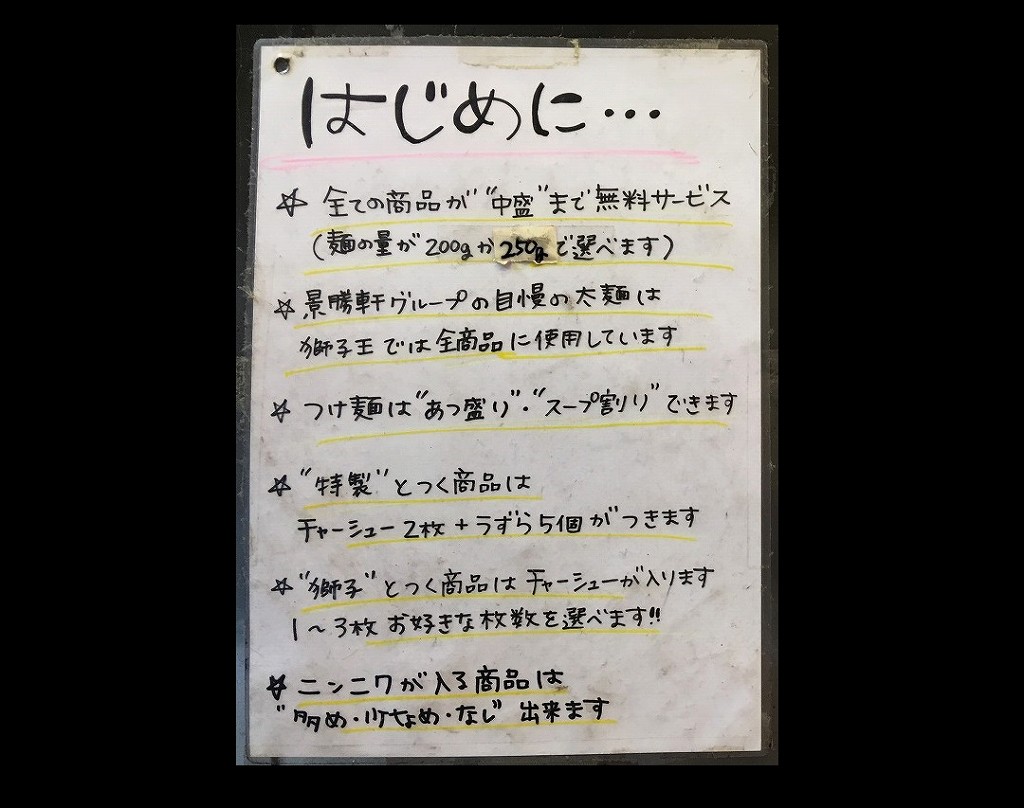 はじめに…
☆ 全ての商品が“中盛”まで無料サービス
(麺の量が200gか250gで選べます)
☆ 景勝軒グループの自慢の太麺は
獅子王では全商品に使用しています
☆ つけ麺は“あつ盛り”・“スープ割り”できます
☆ “特製”とつく商品は
チャーシュー2枚+うずら5個がつきます
☆ “獅子”とつく商品はチャーシューが入ります
1～3枚お好きな枚数を選べます!!
☆ ニンニクが入る商品は
“多め・少なめ・なし”出来ます